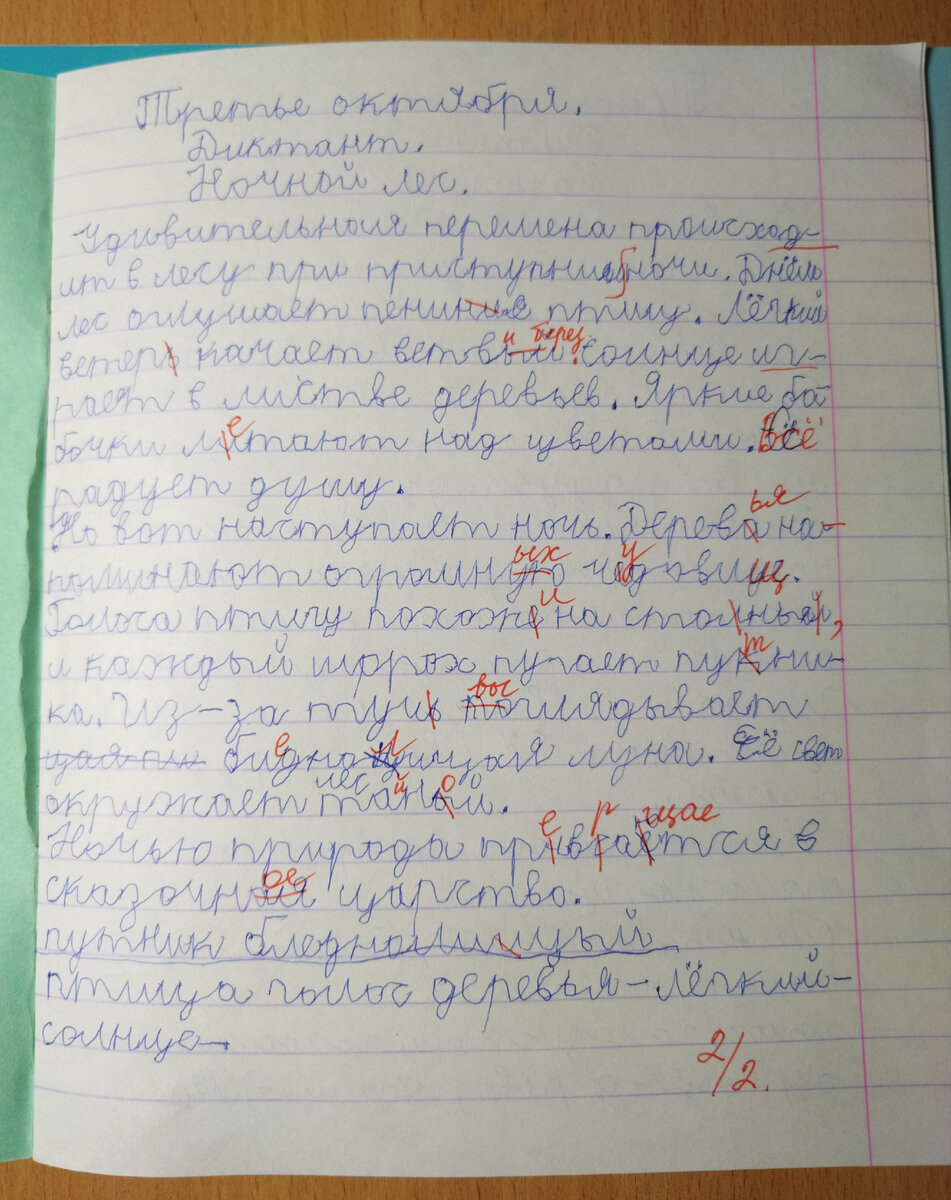 Третье октября.
Диктант.
Ночной лес.
Удивительная перемена происход-
ит в лесу при приступнии ночи. Днём
лес оглушает пение птиц. Лёгкий
и берез
ветерь качает ветовьи. Солнце иг-
рает в листве деревьев. Яркие ба
бочки литают над цветами. Всё
радует душу.
Но вот наступает ночь. Дерева на-
поминают огромную чудовищ.
Голоса птиц похоже на стоный,
и каждый шорох пугает пукни-
ка. Из-за туч поглядывает
бидно лицая луна. Её свет
лес
окружает таный.
Ночью природа привгается в
сказочный царство.
путник бледнолицый
птица голос деревья-лёгкий-
солнце-
2/2.